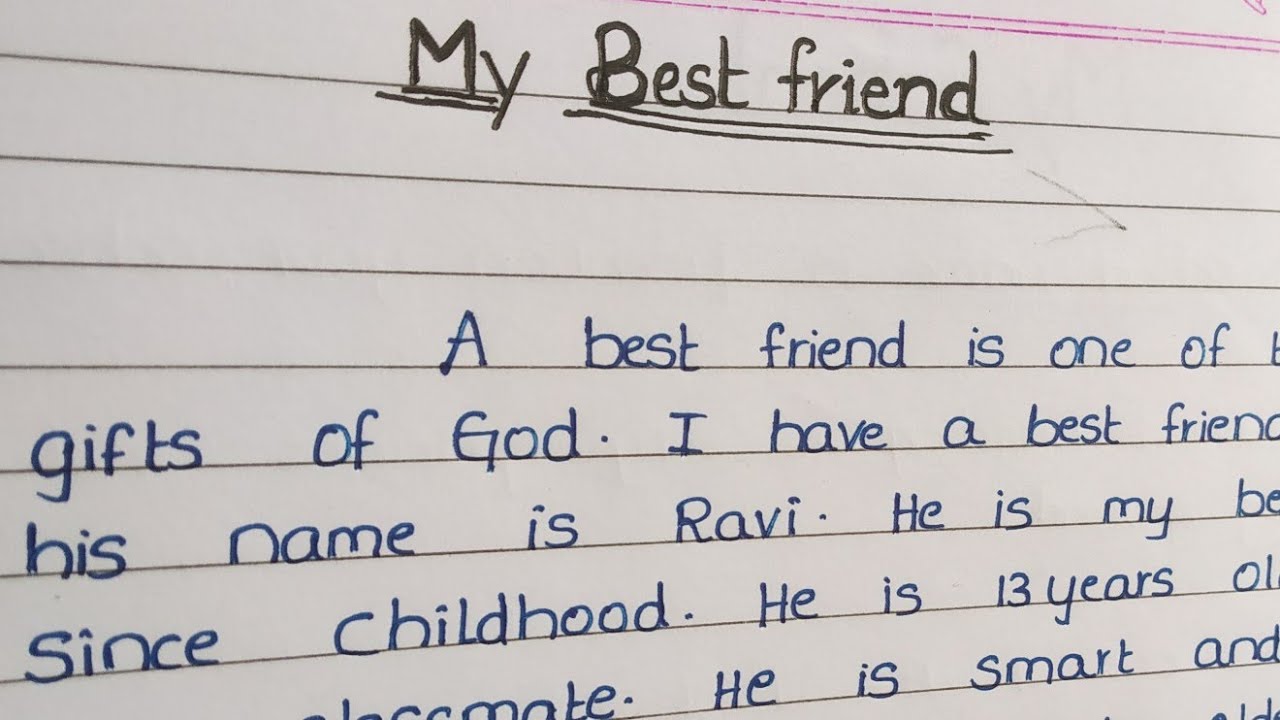 My Best friend
A best friend is one of
gifts of God. I have a best friend
his name is Ravi. He is my
since childhood. He is 13 years
He is smart and